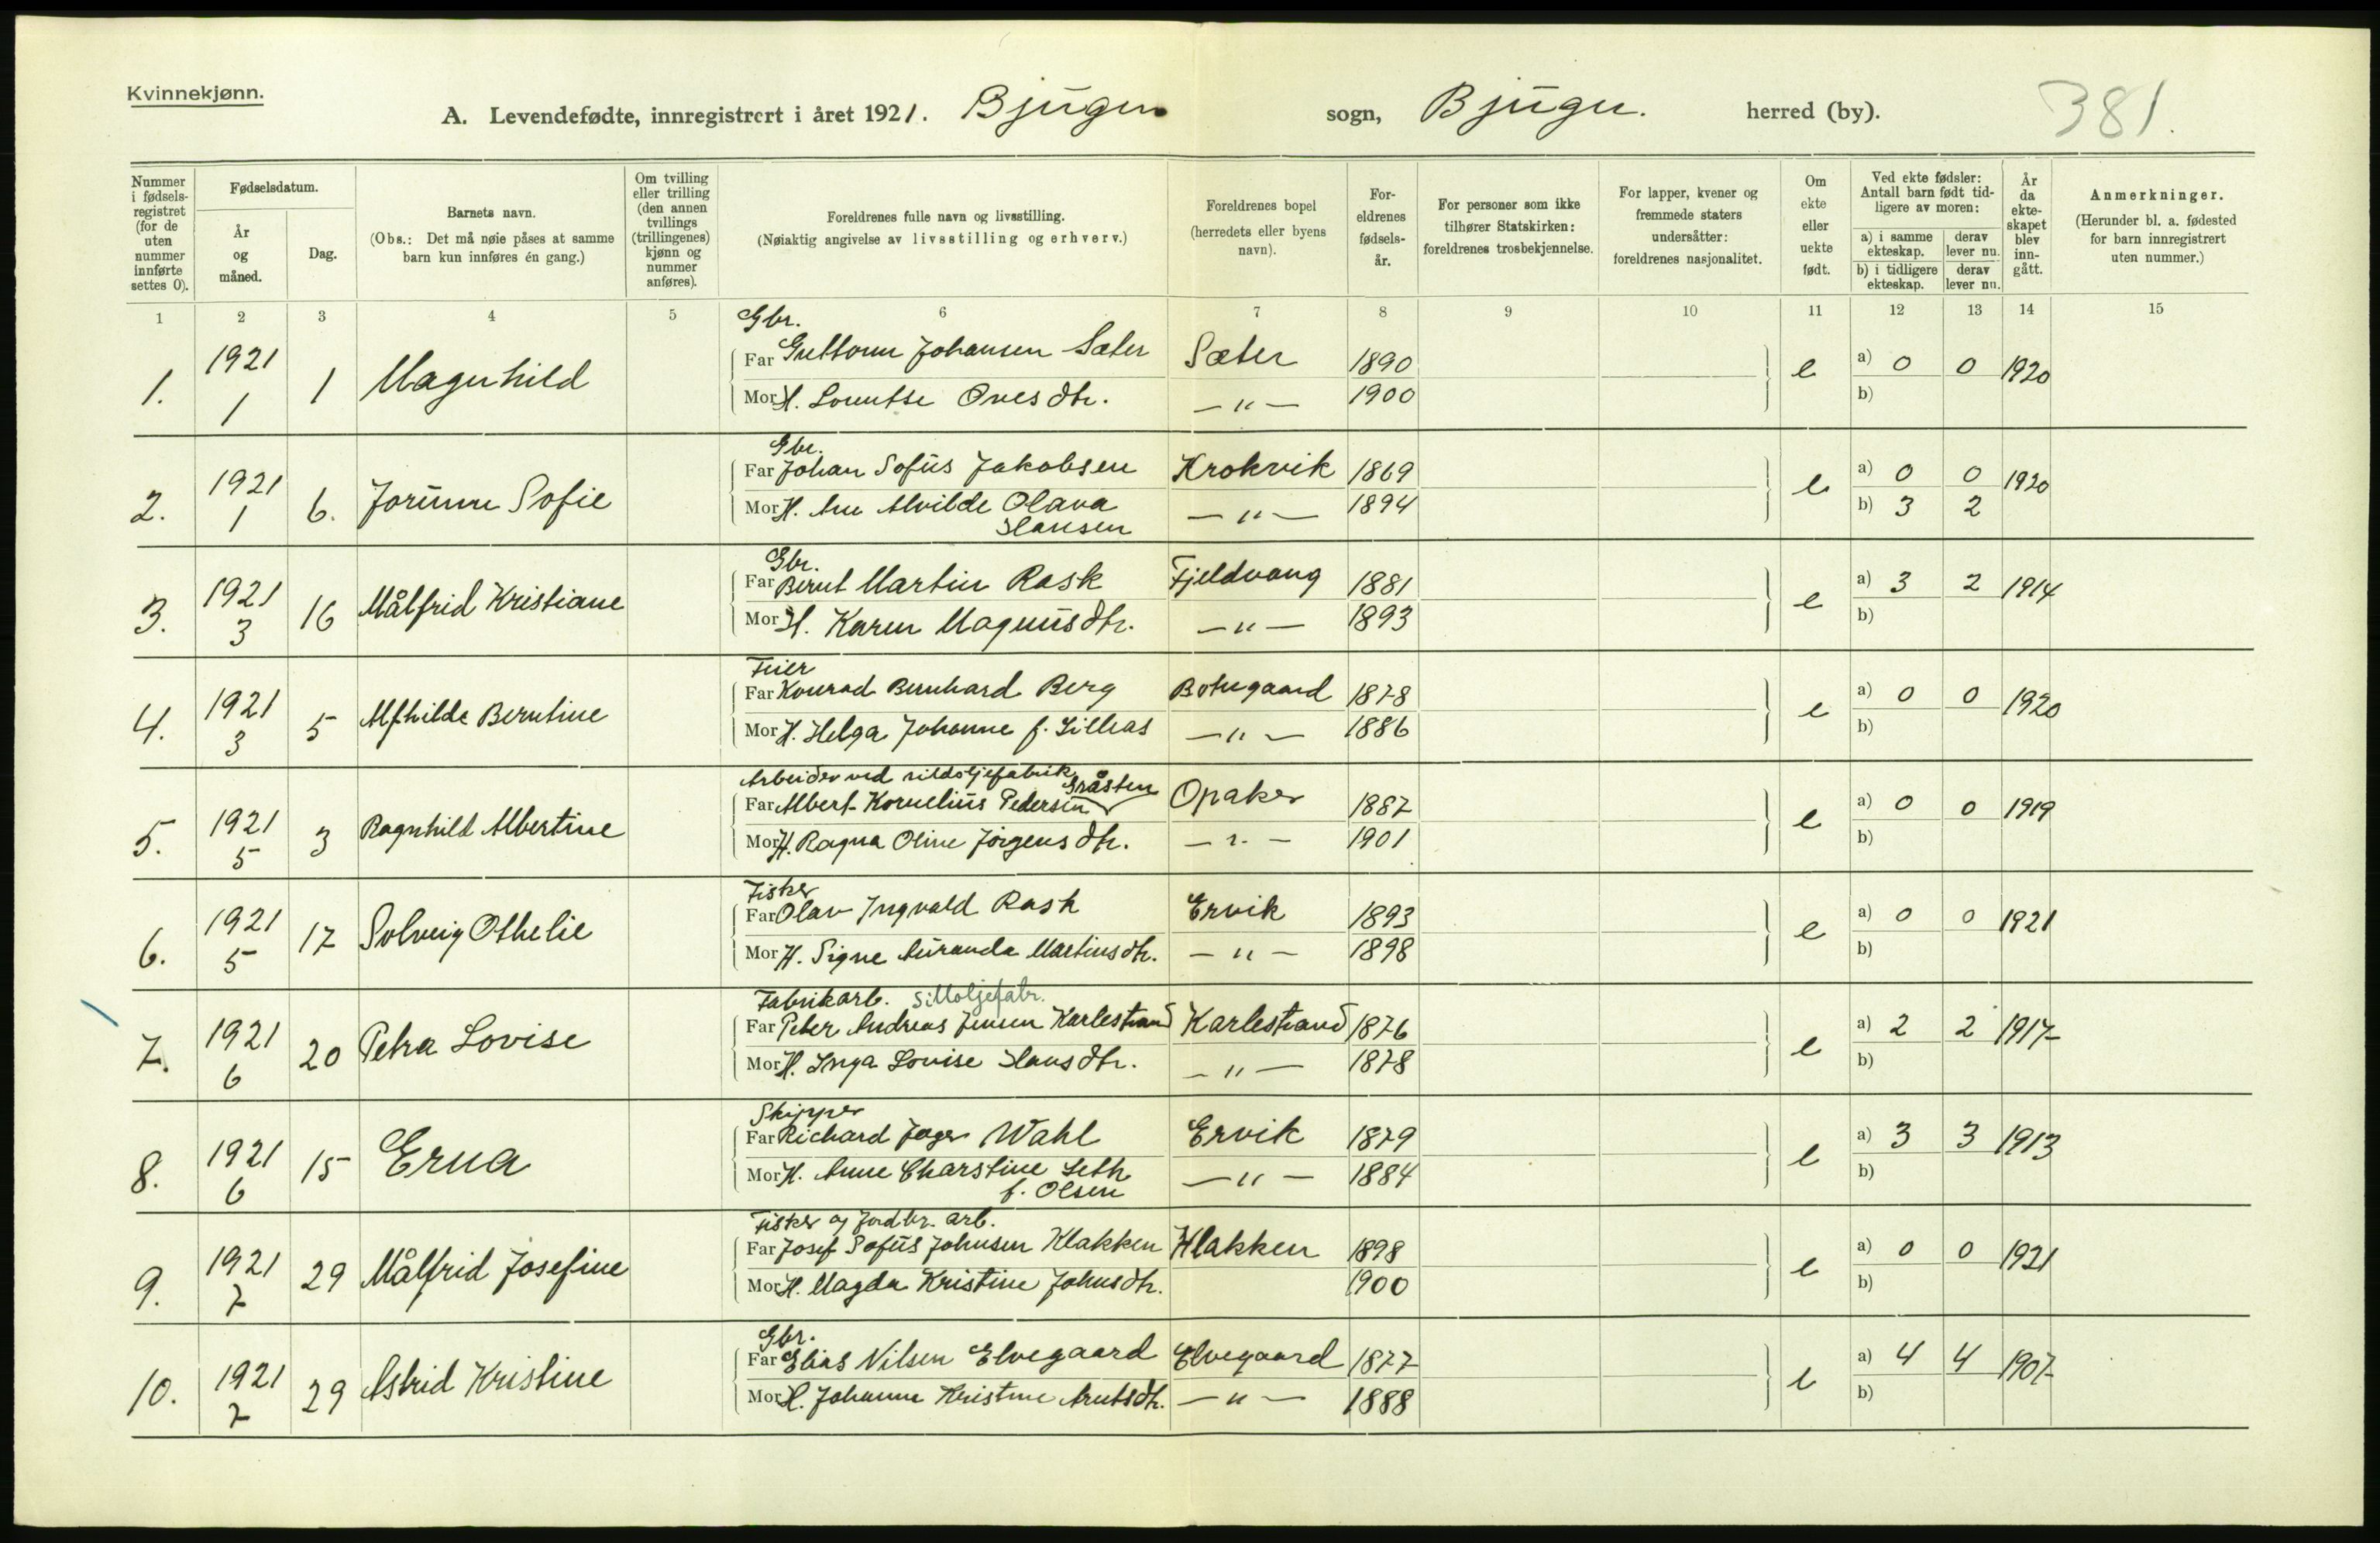 Kvinnekjønn.
A. Levendefødte, innregistrert i året 1921. Bjugn sogn, Bjugn. herred (by). 381.
Nummer i fødselsregistret (for de uten nummer innførte settes 0).
Fødselsdatum.
År og måned.
Dag.
Barnets navn.
(Obs.: Det må nøie påses at samme barn kun innføres én gang.)
Om tvilling eller trilling (den annen tvillings (trillingenes) kjønn og nummer anføres).
Foreldrenes fulle navn og livsstilling.
(Nøiaktig angivelse av livsstilling og erhverv.)
Foreldrenes bopel (herredets eller byens navn).
Foreldrenes fødselsår.
For personer som ikke tilhører Statskirken: foreldrenes trosbekjennelse.
For lapper, kvener og fremmede staters undersåtter: foreldrenes nasjonalitet.
Om ekte eller uekte født.
Ved ekte fødsler: Antall barn født tidligere av moren:
a) i samme ekteskap. derav lever nu.
b) i tidligere ekteskap. derav lever nu.
År da ekteskapet blev inngått.
Anmerkninger.
(Herunder bl. a. fødested for barn innregistrert uten nummer.)
1 2 3 4 5 6 7 8 9 10 11 12 13 14 15
Gbr.
1. 1921 1 1 Magnhild Far Guttorm Johansen Sæter Sæter 1890 e a) 0 0 1920
Mor H. Lorentse Ovesdtr. — " — 1900 b)
Gbr.
2. 1921 1 6. Jorunn Sofie Far Johan Sofus Jakobsen Krokvik 1869 e a) 0 0 1920
Mor H. Ane Alvilde Olava Hansen — " — 1894 b) 3 2
Gbr.
3. 1921 3 16 Målfrid Kristiane Far Bernt Martin Rask Fjeldvang 1881 e a) 3 2 1914
Mor H. Karen Magnusdtr. — " — 1893 b)
Feier
4. 1921 3 5 Alfhilde Berntine Far Konrad Bernhard Berg Botngaard 1878 e a) 0 0 1920
Mor H. Helga Johanne f. Lilleas — " — 1886 b)
Arbeider ved sildoljefabrik
5. 1921 5 3 Ragnhild Albertine Far Albert Kornelius Pedersen Gråsten Opaker 1887 e a) 0 0 1919
Mor H. Ragna Oline Jørgensdtr. — " — 1901 b)
Fisker
6. 1921 5 17 Solveig Othelie Far Olav Ingvald Rask Ervik 1893 e a) 0 0 1921
Mor H. Signe Auranda Martinsdtr. — " — 1898 b)
Fabrikarb. Silloljefabr.
7. 1921 6 20 Petra Lovise Far Peter Andreas Jensen Karlestrand Karlestrand 1876 e a) 2 2 1917
Mor H. Inga Lovise Hansdtr. — " — 1878 b)
Skipper
8. 1921 6 15 Erna Far Richard Jager Wahl Ervik 1879 e a) 3 3 1913
Mor H. Anne Charstine Leth f. Olsen — " — 1884 b)
Fisker og Jordbr. arb.
9. 1921 7 29 Målfrid Josefine Far Josef Sofus Johnsen Klakken Klakken 1898 e a) 0 0 1921
Mor H. Magda Kristine Johnsdtr. 1900 b)
Gbr.
10. 1921 7 29 Astrid Kristine Far Elias Nilsen Elvegaard Elvegaard 1877 e a) 4 4 1907
Mor H. Johanne Kristine Arntsdtr. — " — 1888 b)